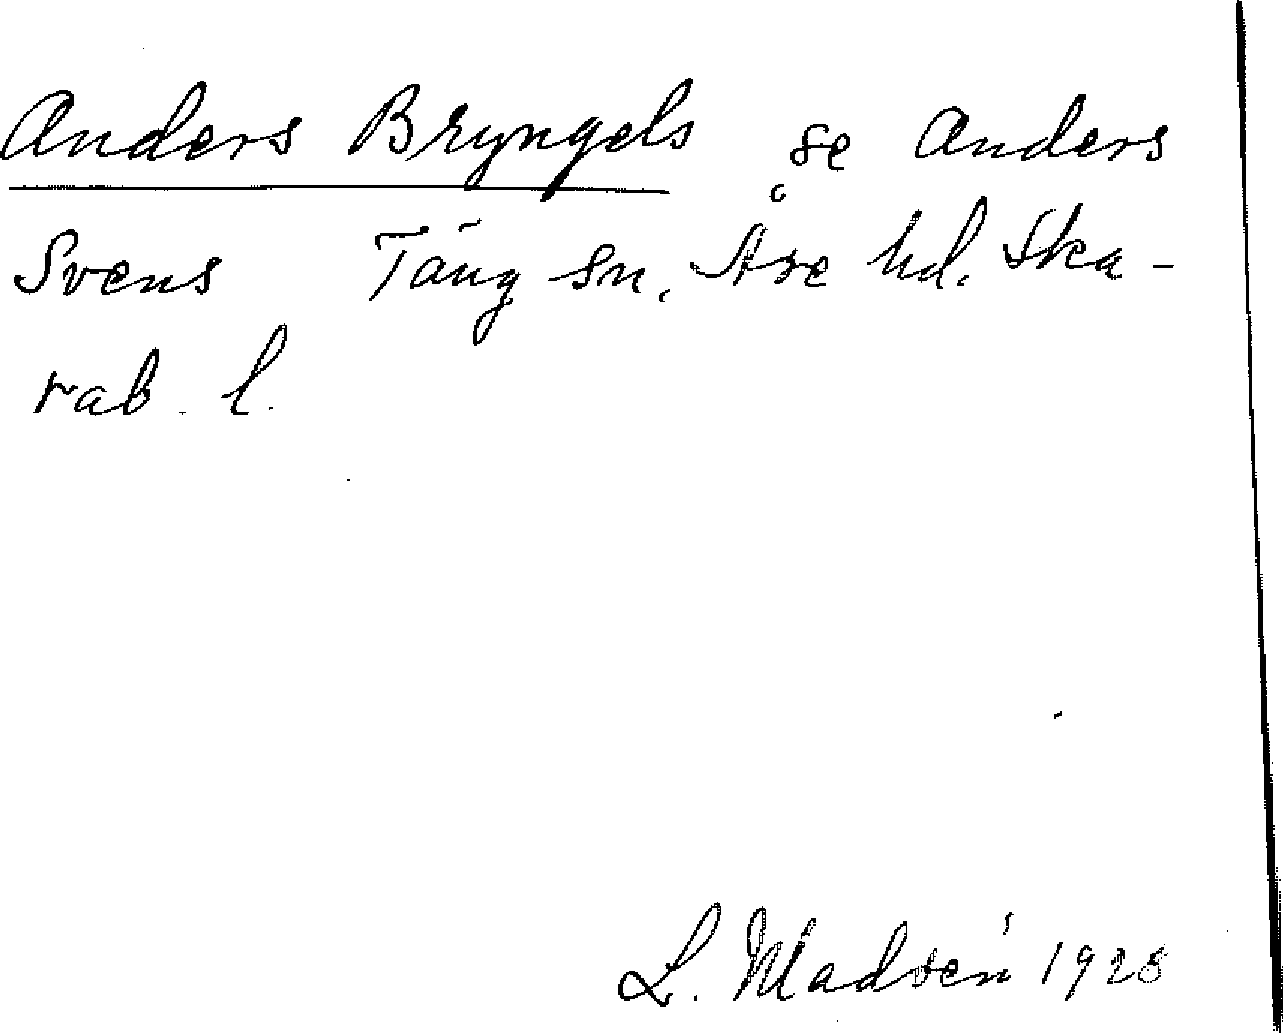 Anders Bryngels se Anders
Svens Täng sn, Åse hd. Ska-
rab. l.
L. Madsén 1928